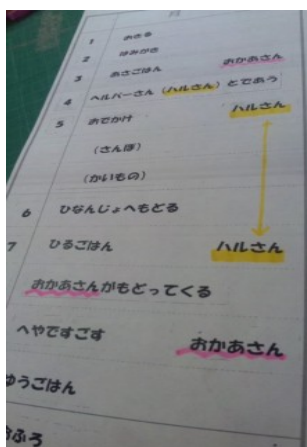 月
1 おきる
2 はみがき
3 あさごはん おかあさん
4 ヘルパーさん(ハルさん)とであう
5 おでかけ ハルさん
(さんぽ)
(かいもの)
6 ひなんじょへもどる
7 ひるごはん ハルさん
おかあさんがもどってくる
へやですごす おかあさん
ゆうごはん
おふろ